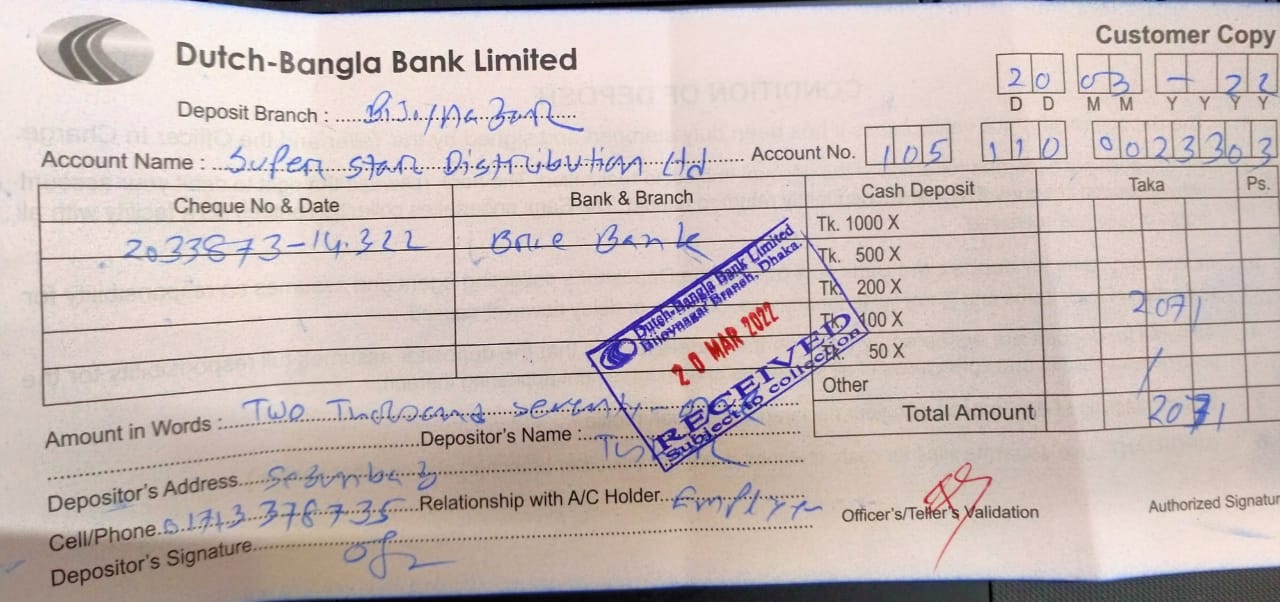 Customer Copy
Dutch-Bangla Bank Limited
20 03 - 22
D D M M Y Y Y Y
Deposit Branch :
Account Name : Super Star Distribution Ltd Account No. 105 110 0023303
Cheque No & Date Bank & Branch Cash Deposit Taka Ps.
2033873-14.322 Bank Tk. 1000 X
Tk. 500 X
Tk. 200 X
Tk. 100 X 2071
Tk. 50 X
Other
Total Amount 2071
Dutch-Bangla Bank Limited
Bijoynagar Branch, Dhaka.
20 MAR 2022
RECEIVED
Subject to collection
Amount in Words : Two Thousand seventy
Depositor's Name :
Depositor's Address
Cell/Phone 01713378735 Relationship with A/C Holder
Depositor's Signature
Officer's/Teller's Validation Authorized Signatur